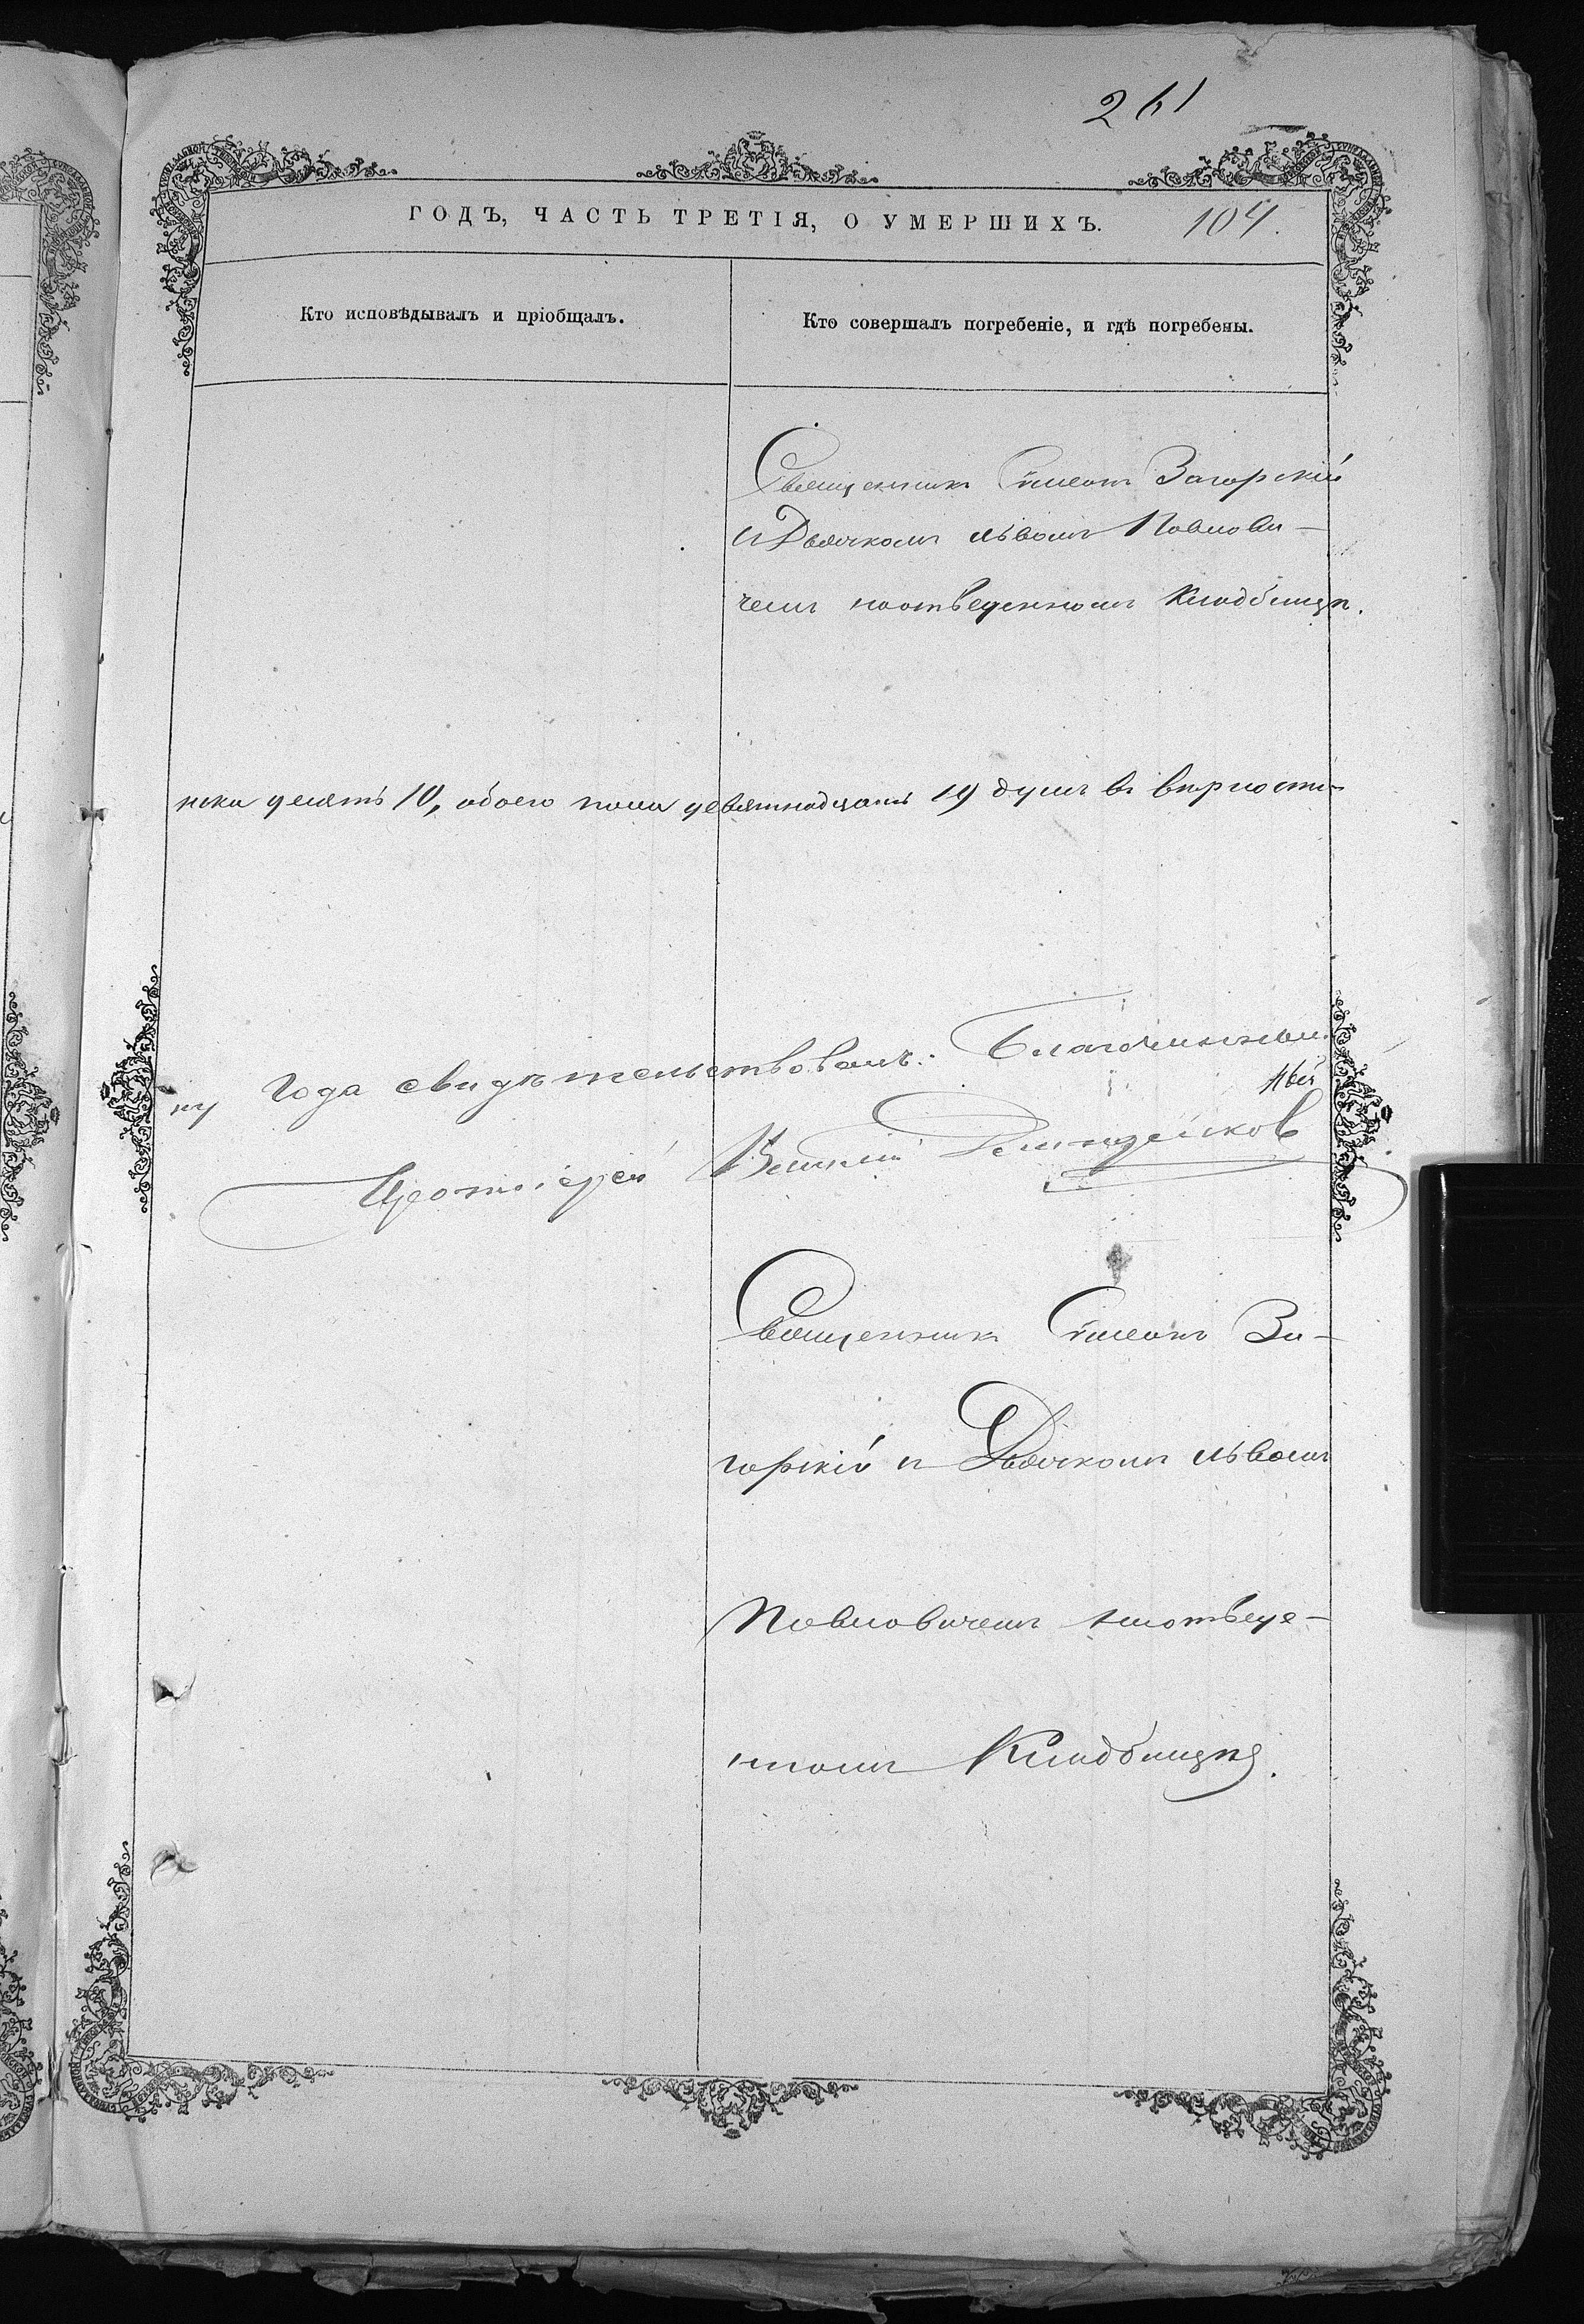 261
ГОДЪ, ЧАСТЬ ТРЕТІЯ, О УМЕРШИХЪ. 104.
Кто исповѣдывалъ и пріобщалъ.
Кто совершалъ погребеніе, и гдѣ погребены.
Священникъ Симеонъ Загорскій
и Дьячкомъ Львомъ Павлови-
чемъ наотведенномъ Кладбищѣ.
нска десять 10, обоего пола девятнадцать 19 душъ въ вѣрности
ну Года свидѣтельствовалъ: Благочинный
Протоіерей
Священникъ Симеонъ За-
горскій и Дьячкомъ Львомъ
Павловичемъ наотведе-
нномъ Кладбищѣ.